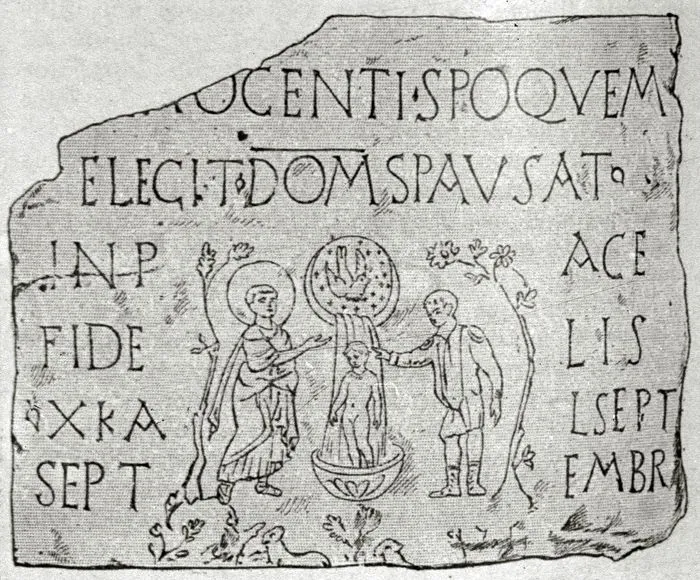 OCENTI·SPOQVEM
ELEGIT·DOM̅SPAVSAT
INP ACE
FIDE LIS
XKA LSEPT
SEPT EMBR